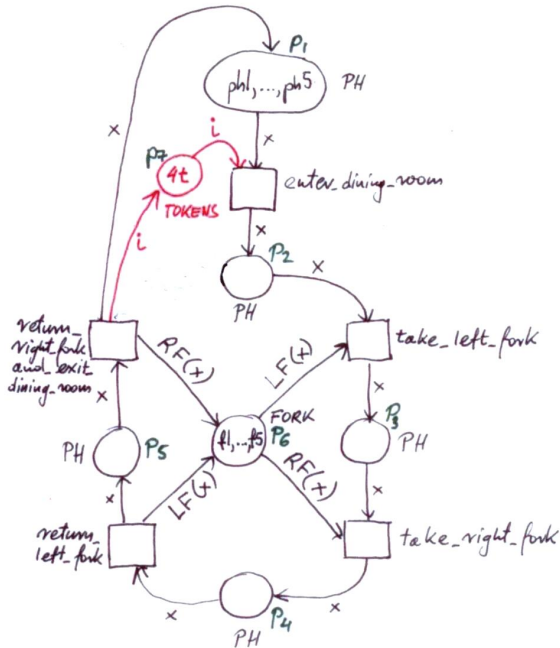 P1
ph1,...,ph5 PH
x
x
i
P7
4t
TOKENS
enter_dining_room
i
x
P2
x
PH
return_
right_fork
and_exit_
dining_room
RF(x)
LF(x)
take_left_fork
x
x
FORK
P6
f1,..,f5
P3
PH
PH
P5
x
LF(x)
RF(x)
x
return_
left_fork
take_right_fork
x
x
P4
PH